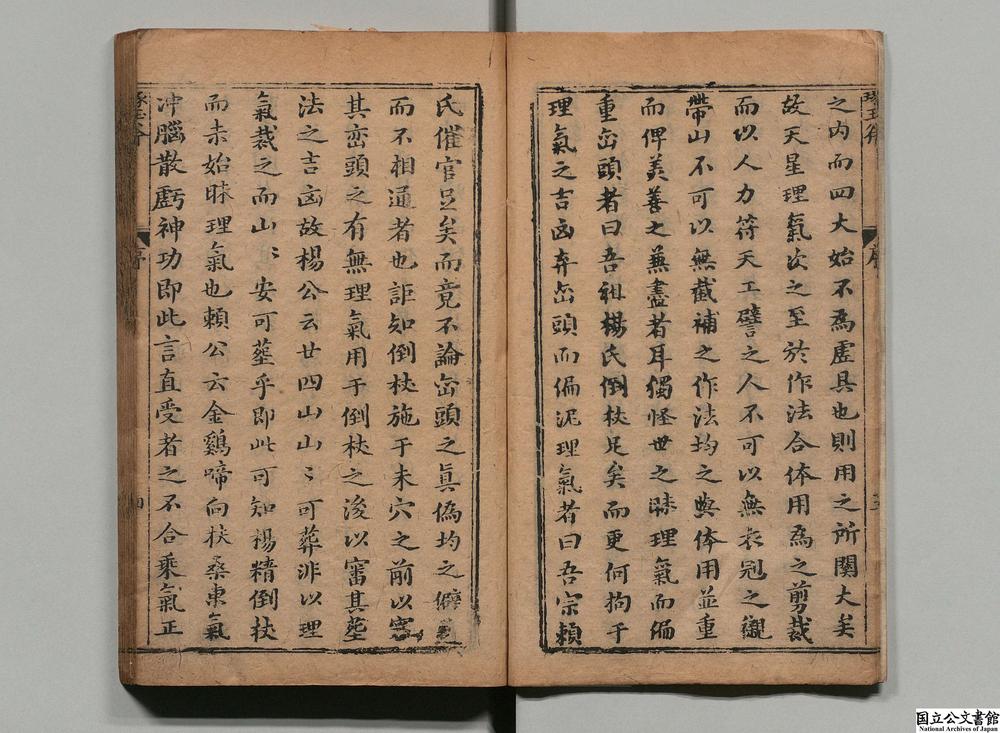 之內而四大始不為虛具也則用之所關大矣
故天星理氣次之至於作法合体用為之剪裁
而以人力符天工譬之人不可以無衣冠之觀
帶山不可以無截補之作法均之與体用並重
而俾美善之兼盡者耳獨怪世之昧理氣而偏
重巒頭者曰吾祖楊氏倒杖足矣而更何拘于
理氣之吉凶弃巒頭而偏泥理氣者曰吾宗賴
序
氏催官足矣而竟不論巒頭之真偽均之僻
而不相通者也詎知倒杖施于未穴之前以審
其巒頭之有無理氣用于倒杖之後以審其塟
法之吉凶故楊公云廿四山山〻可葬非以理
氣裁之而山〻安可塟乎即此可知楊精倒杖
而未始昧理氣也賴公云金鷄啼向扶桑東氣
冲腦散虧神功即此言直受者之不合乘氣正
序
四
国立公文書館
National Archives of Japan